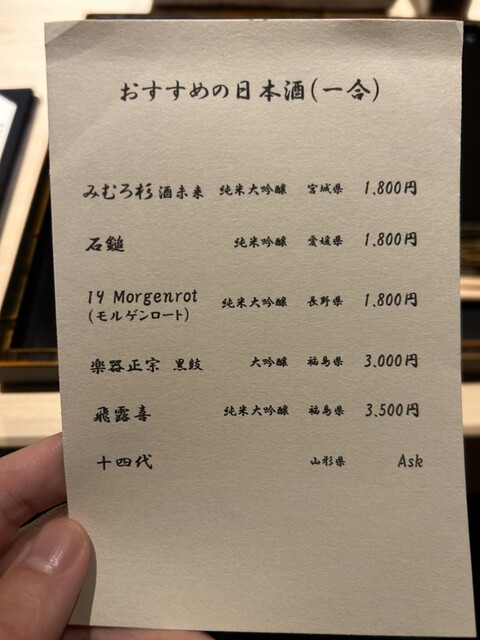 おすすめの日本酒(一合)
みむろ杉 酒未来 純米大吟醸 宮城県 1,800円
石鎚 純米吟醸 愛媛県 1,800円
14 Morgenrot 純米大吟醸 長野県 1,800円
(モルゲンロート)
楽器正宗 黒鼓 大吟醸 福島県 3,000円
飛露喜 純米大吟醸 福島県 3,500円
十四代 山形県 Ask